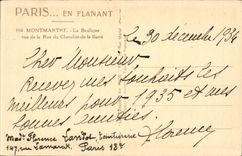 PARIS... EN FLANANT
194 MONTMARTRE. - La Basilique
vue de la Rue du Chevalier-de-la-Barre
le 30 décembre 1934
Cher Monsieur
Recevez mes souhaits les
meilleurs pour 1935 et mes
bonnes amitiés.
Florence
Mad. Florence teinturerie
147, rue Lamarck. Paris 18e